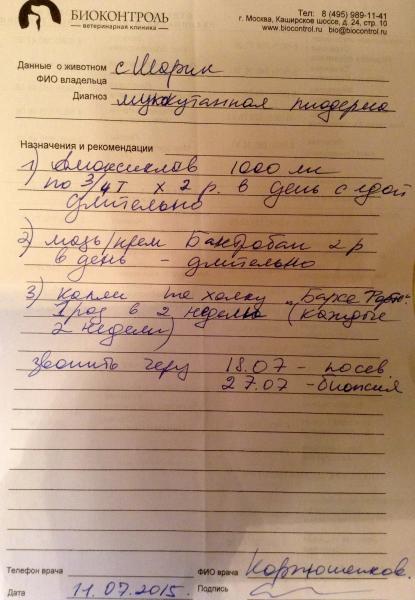 БИОКОНТРОЛЬ
ветеринарная клиника
Тел: 8 (495) 989-11-41
г. Москва, Каширское шоссе, д. 24, стр. 10
www.biocontrol.ru bio@biocontrol.ru
Данные о животном с Шарик
ФИО владельца
Диагноз мукокутанная пиодерма
Назначения и рекомендации
1) Амоксиклав 1000 мг
по 3/4 т х 2 р. в день с едой
длительно
2) мазь/крем Бактробан 2 р
в день - длительно
3) капли на холку „Барс Форте"
1 раз в 2 недели (каждые
2 недели)
звонить 18.07 - посев
27.07 - биопсия
Телефон врача
ФИО врача
Дата 11.07.2015.
Подпись